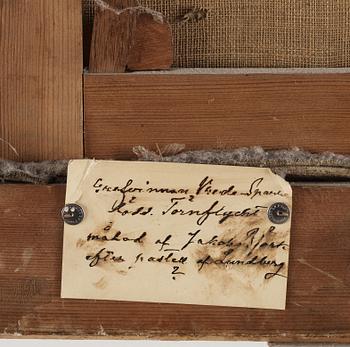 Grefvinnan Vrede-Sparre
Född. Törnflycht
målad af Jakob Björk
efter pastell af Lundberg
?